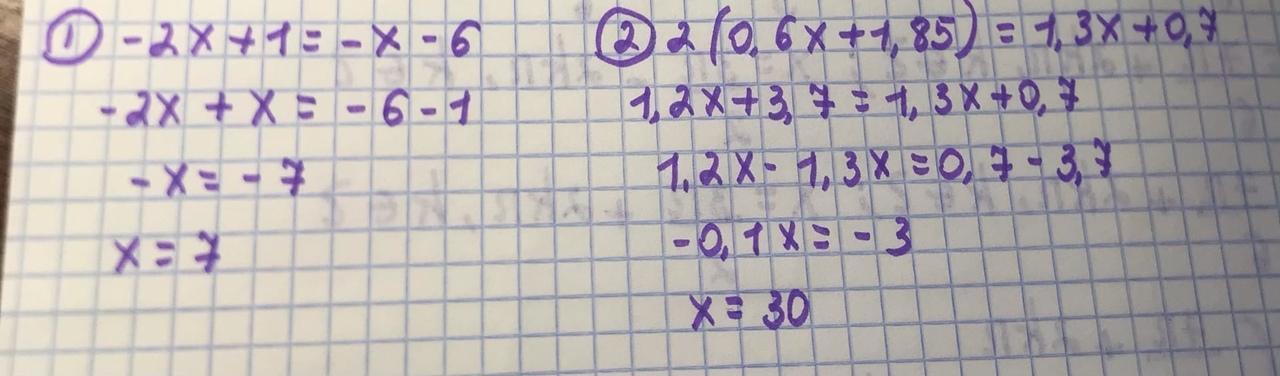 ① -2x+1=-x-6
-2x+x=-6-1
-x=-7
x=7
② 2(0,6x+1,85)=1,3x+0,7
1,2x+3,7=1,3x+0,7
1,2x-1,3x=0,7-3,7
-0,1x=-3
x=30